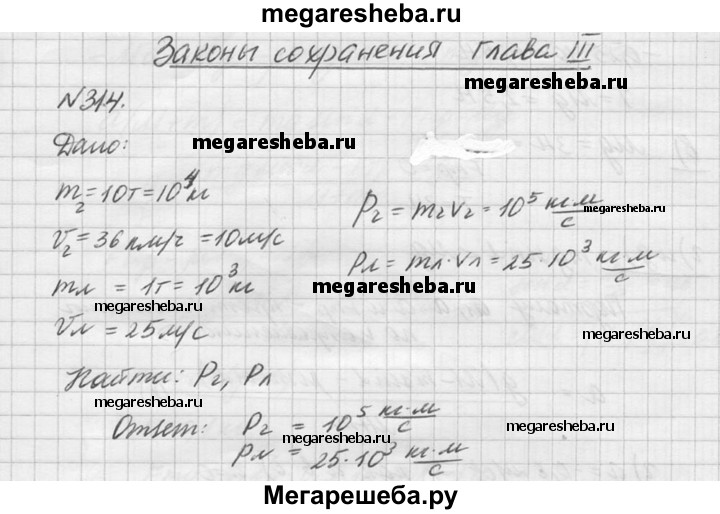 megaresheba.ru
Законы сохранения Глава III
megaresheba.ru
№314.
Дано:
megaresheba.ru
m₂=10т=10⁴м
Pг = mгvг = 10⁵ кг·м/с
megaresheba.ru
v₂=36км/ч =10м/с
Pл = mл·vл = 25·10³ кг·м/с
mл = 1т= 10³кг
megaresheba.ru
megaresheba.ru
megaresheba.ru
vл = 25м/с
Найти: Pг, Pл
megaresheba.ru
Ответ: Pг = 10⁵ кг·м/с
megaresheba.ru
megaresheba.ru
Pл = 25·10³ кг·м/с
Мегарешеба.ру